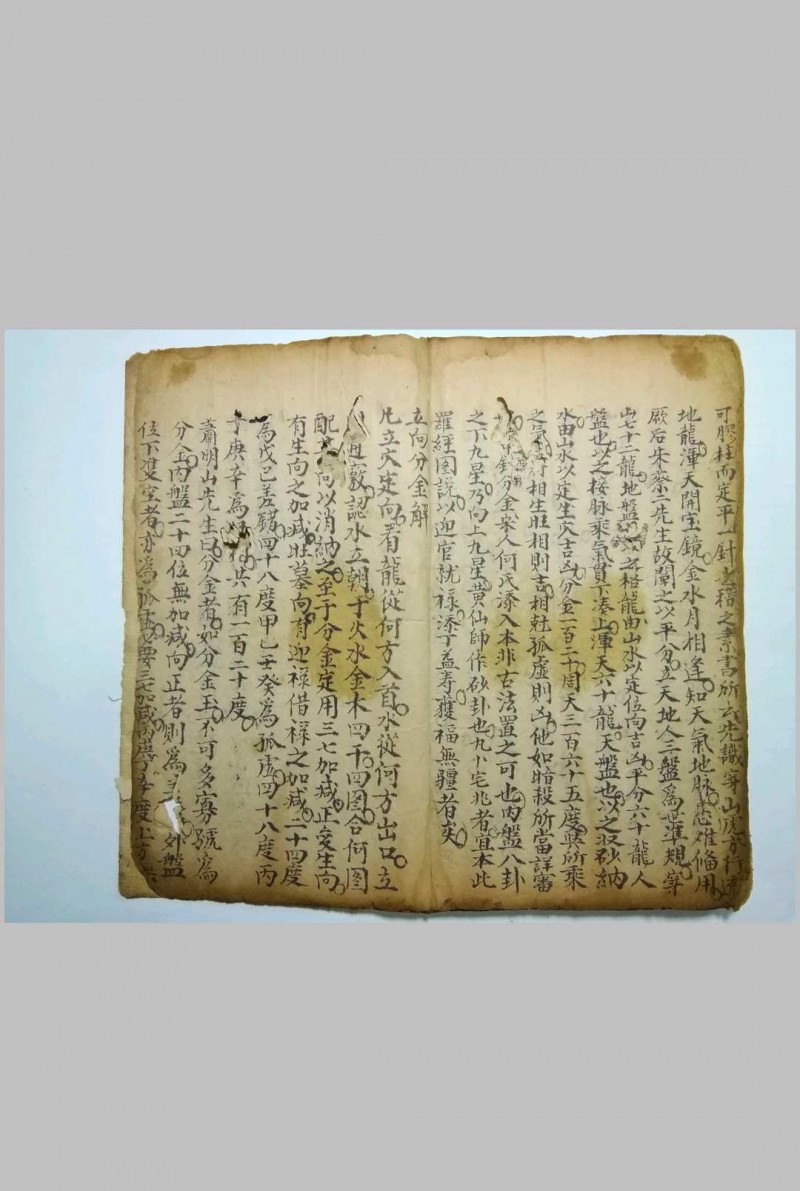 可膠柱而定平一針
地龍渾天開宝鏡金水月相逢知天氣地脉悉难俻用
厥后朱蔡二先生故闡之以平分立天地人三盤為世準規穿
山七十二龍地盤以之格龍由山水以定位向吉凶平分六十龍人
盤也以之接脉乘氣貫下凑上渾天六十龍天盤也以之収砂納
水由山水以定生灾吉凶分金一百二十周天三百六十五度與所乘
之氣相生旺相則吉相尅孤虛則凶他如暗殺所當詳審
分金宋人何氏添入本非古法置之可也内盤八卦
之下九星乃向上九星黄仙師作砂卦也九卜宅兆者宜本此
羅經图說以迎官就禄添丁益寿獲福無疆者矣
立向分金解
凡立穴定向看龍從何方入首水從何方出口立
竅認水立朝于火水金木四千四图合何图
配其向以消納之至于分金定用三七加减正变生向
有生向之加减旺墓向有迎禄借禄之加减二十四度
為戊己差錯四十八度甲乙壬癸為孤虛四十八度丙
丁庚辛為共有一百二十度
蕭明山先生曰分金者如分金玉不可多寡號為
分金内盤二十四位無加减向正者則為外盤
位下双空者亦為孤虛必要三七加减